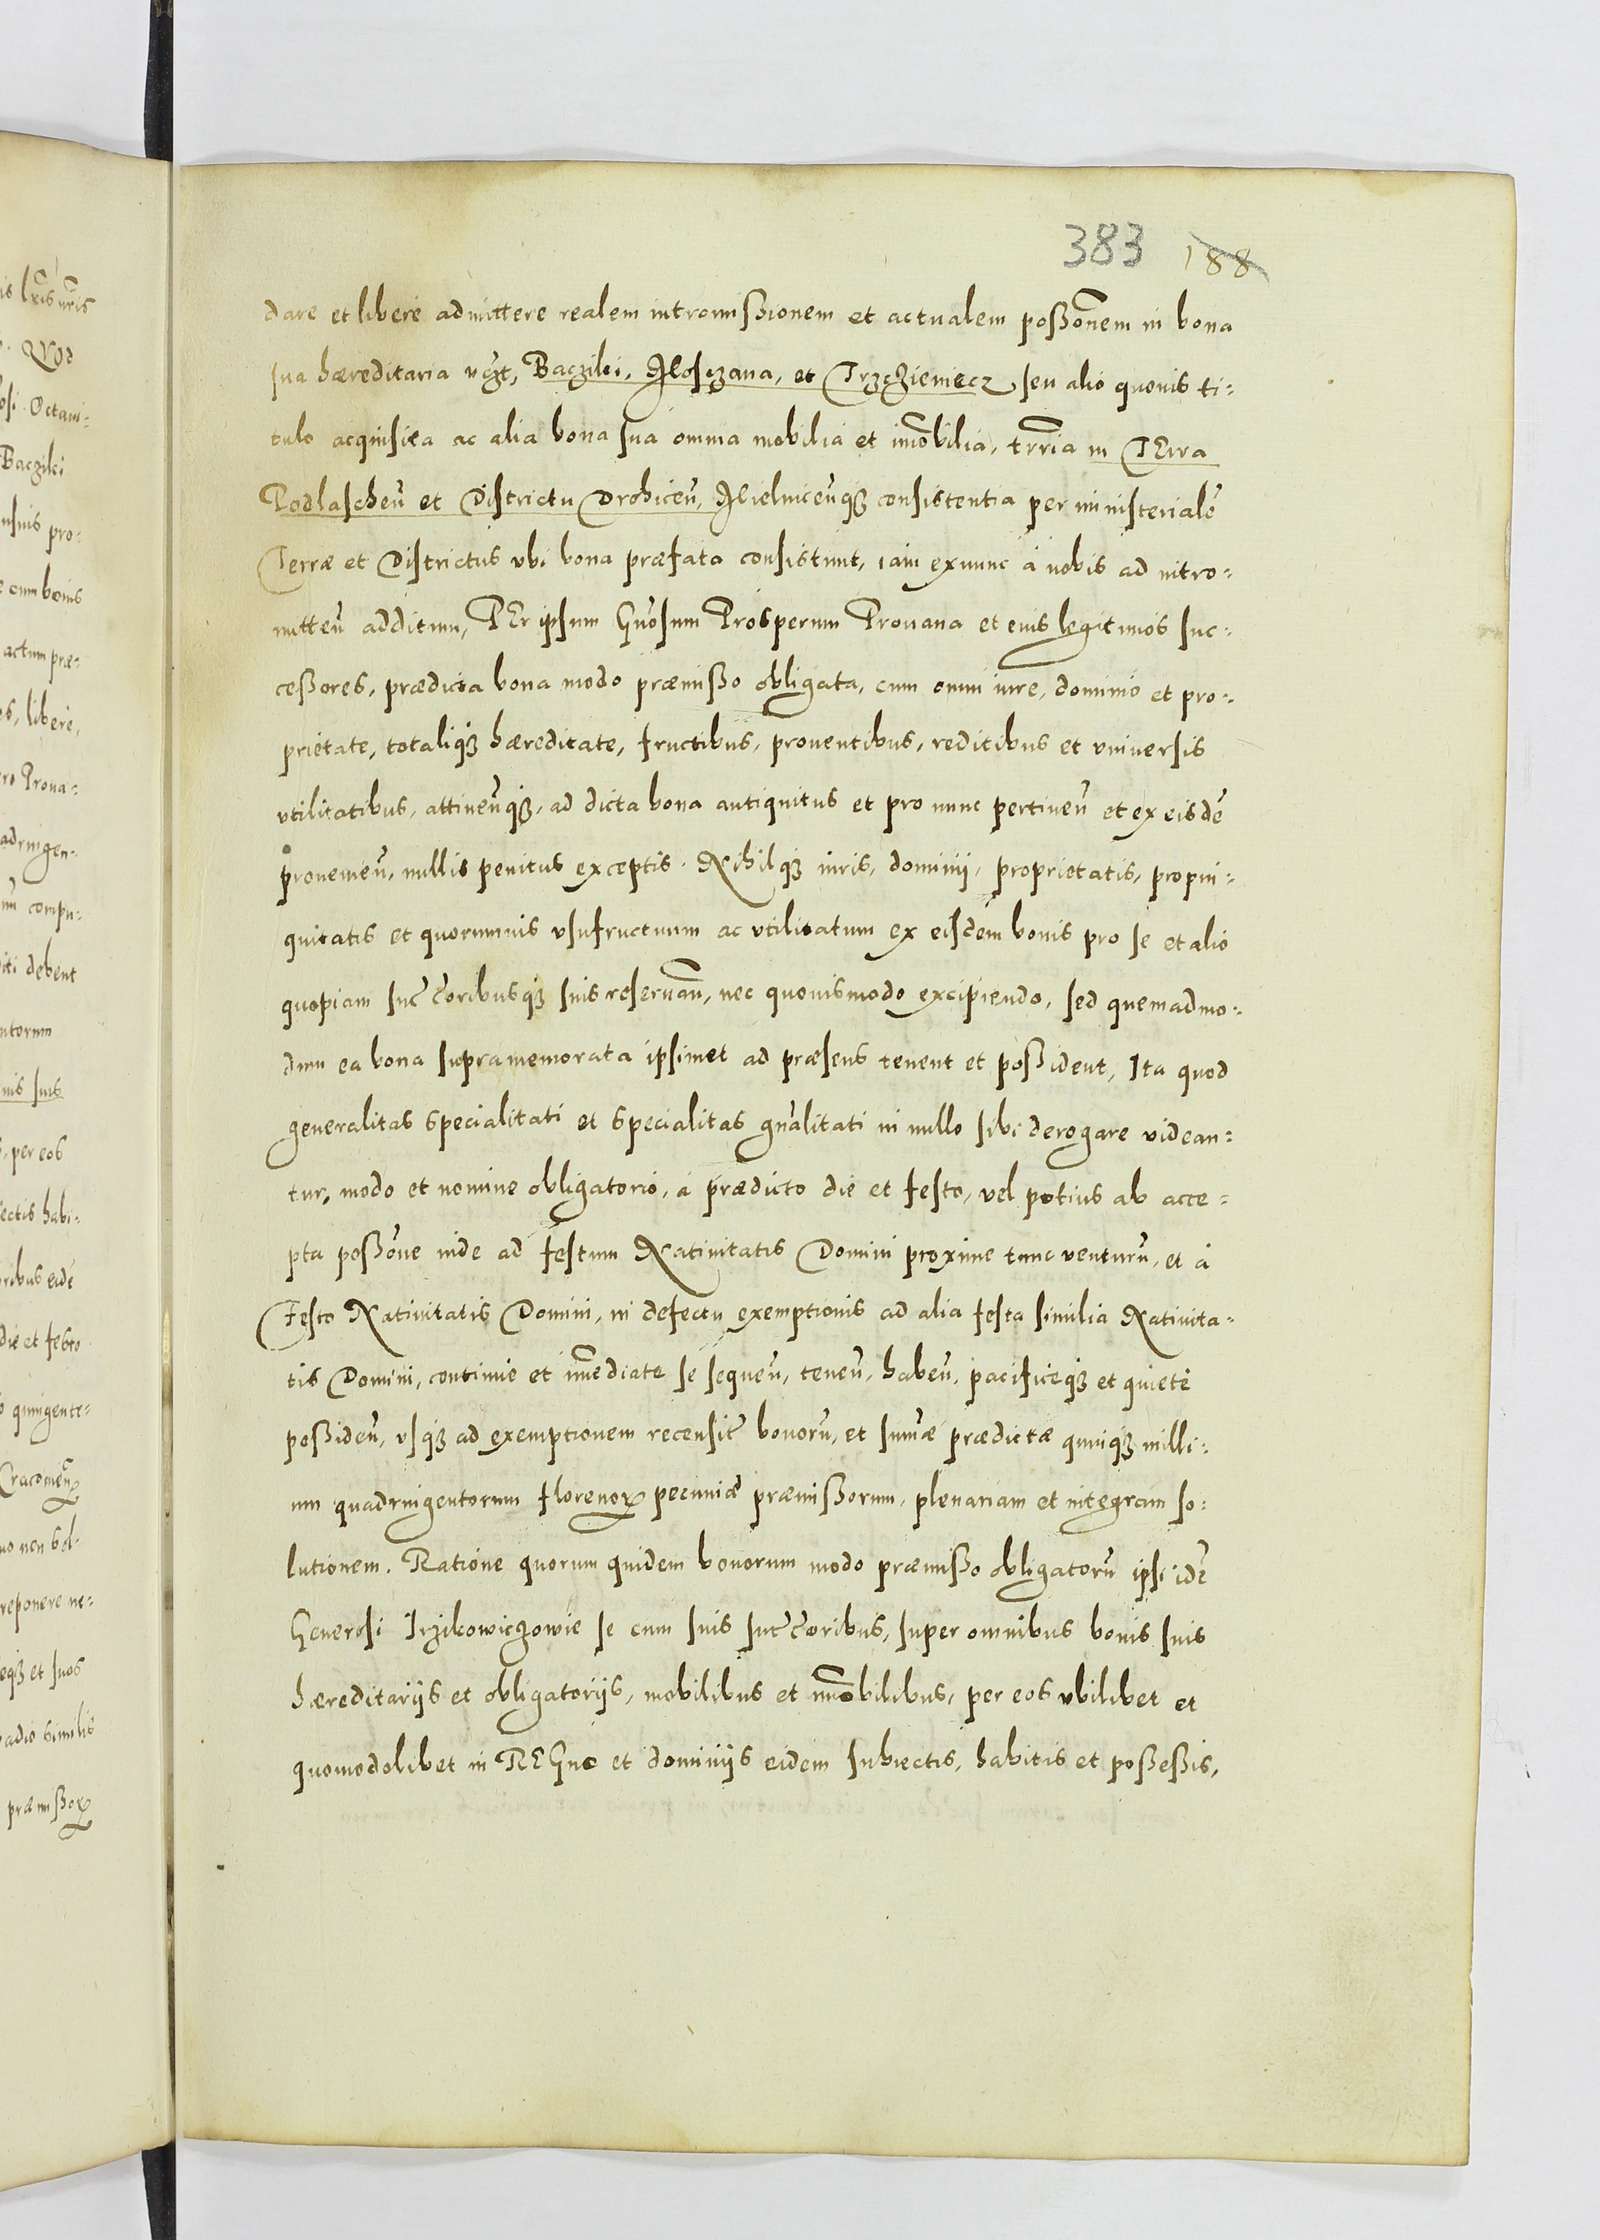 383 188
dare et libere admittere realem intromißionem et actualem poßonem in bona
sua hæreditaria uczt, Baczilei, Mosczana, et Trzczieniecz seu alio quouis ti-
tulo acquisita ac alia bona sua omnia mobilia et imobilia, trria in TErra
Podlascheñ et Districtu Drohiceñ, Mielniceñq3 consistentia per ministerialẽ
Terræ et Districtus vbi bona præfata consistunt, iam exnunc à nobis ad intro-
mitteñ additum, PEr ipsum Gñosum Prosperum Prouana et eius legitimos suc-
ceßores, prædicta bona modo præmißo obligata, cum omni iure, dominio et pro-
prietate, totaliq3 hæreditate, fructibus, prouentibus, reditibus et vniuersis
vtilitatibus, attineñq3, ad dicta bona antiquitus et pro nunc pertineñ et ex eisdẽ
proueñieñ, nullis penitus exceptis. Nihilq3 iuris, dominij, proprietatis, propin-
quitatis et quorumuis vsufructuum ac vtilitatum ex eisdem bonis pro se et alio
quopiam succoribusq3 suis reseruañ, nec quouismodo excipiendo, sed quemadmo-
dum ea bona supramemorata ipsimet ad præsens tenent et poßident, Ita quod
generalitas specialitati et specialitas gñalitati in nullo sibi derogare videan-
tur, modo et nomine obligatorio, à prædicto die et festo, vel potius ab acce-
pta poßone inde ad festum Natiuitatis Domini proxime tunc venturũ, et à
Festo Natiuitatis Domini, in defectu exemptionis ad alia festa similia Natiuita-
tis Domini, continue et imediate se sequeñ, teneñ, habeñ, pacificeq3 et quietè
poßideñ, vsq3 ad exemptionem recensit bonorũ, et sumæ prædictæ quinq3 milli-
um quadringentorum florenoꝝ pecuniæ præmißorum, plenariam et integram so-
lutionem. Ratione quorum quidem bonorum modo præmißo obligatorũ ipsi idẽ
Generosi Irzikowiczowie se cum suis succoribus, super omnibus bonis suis
hæreditarijs et obligatorijs, mobilibus et imobilibus, per eos vbilibet et
quomodolibet in REGno et dominijs eidem subiectis, habitis et poßeßis,